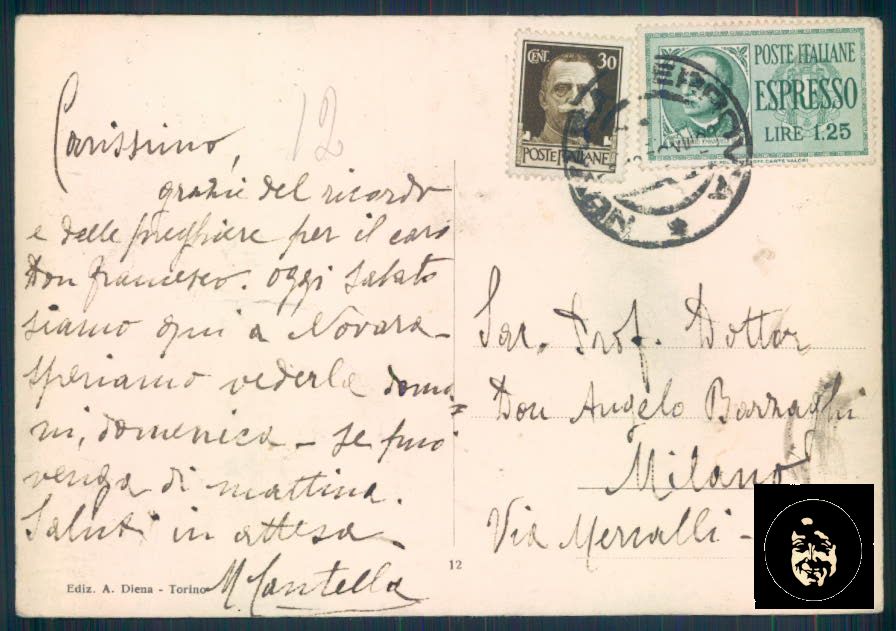 Carissimo,
12
grazie del ricordo
e delle preghiere per il caro
Don Francesco. Oggi sabato
siamo qui a Novara -
speriamo vederla doma=
ni, domenica - se può
venga di mattina.
Saluti in attesa
M Cantella
Ediz. A. Diena - Torino
12
CENT. 30
POSTE ITALIANE
POSTE ITALIANE
ESPRESSO
LIRE 1.25
Sac. Prof. Dottor
Don Angelo Barzaghi
Milano
Via Mercalli -